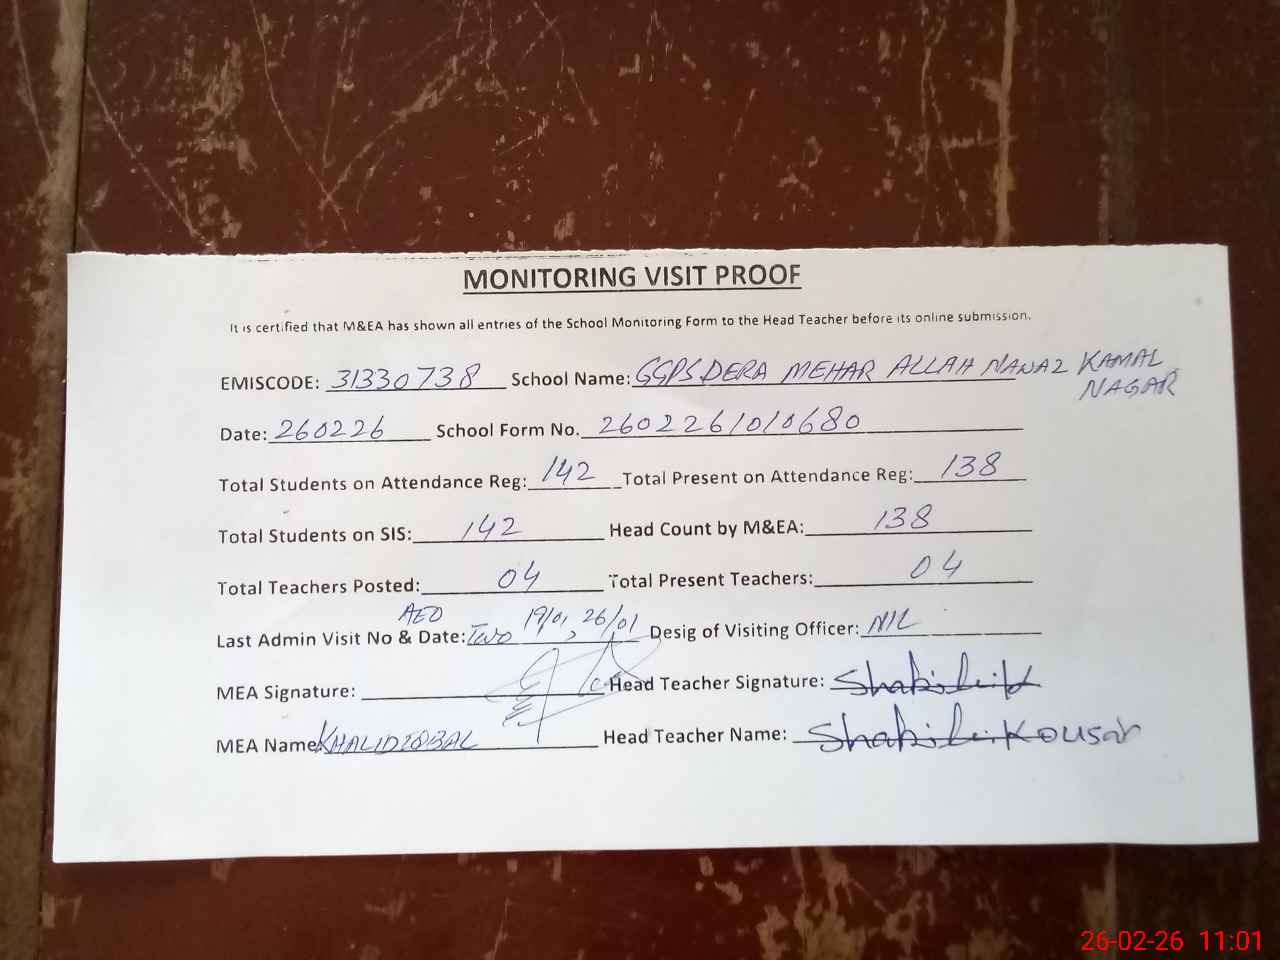 MONITORING VISIT PROOF
It is certified that M&EA has shown all entries of the School Monitoring Form to the Head Teacher before its online submission.
EMISCODE: 31330738 School Name: GGPS DERA MEHAR ALLAH NAWAZ KAMAL
NAGAR
Date: 260226 School Form No. 2602261010680
Total Students on Attendance Reg: 142 Total Present on Attendance Reg: 138
Total Students on SIS: 142 Head Count by M&EA: 138
Total Teachers Posted: 04 Total Present Teachers: 04
AEO
Last Admin Visit No & Date: Two 19/01, 26/01 Desig of Visiting Officer: NIL
MEA Signature: Head Teacher Signature:
MEA Name KHALID IQBAL Head Teacher Name: Kousar
26-02-26 11:01